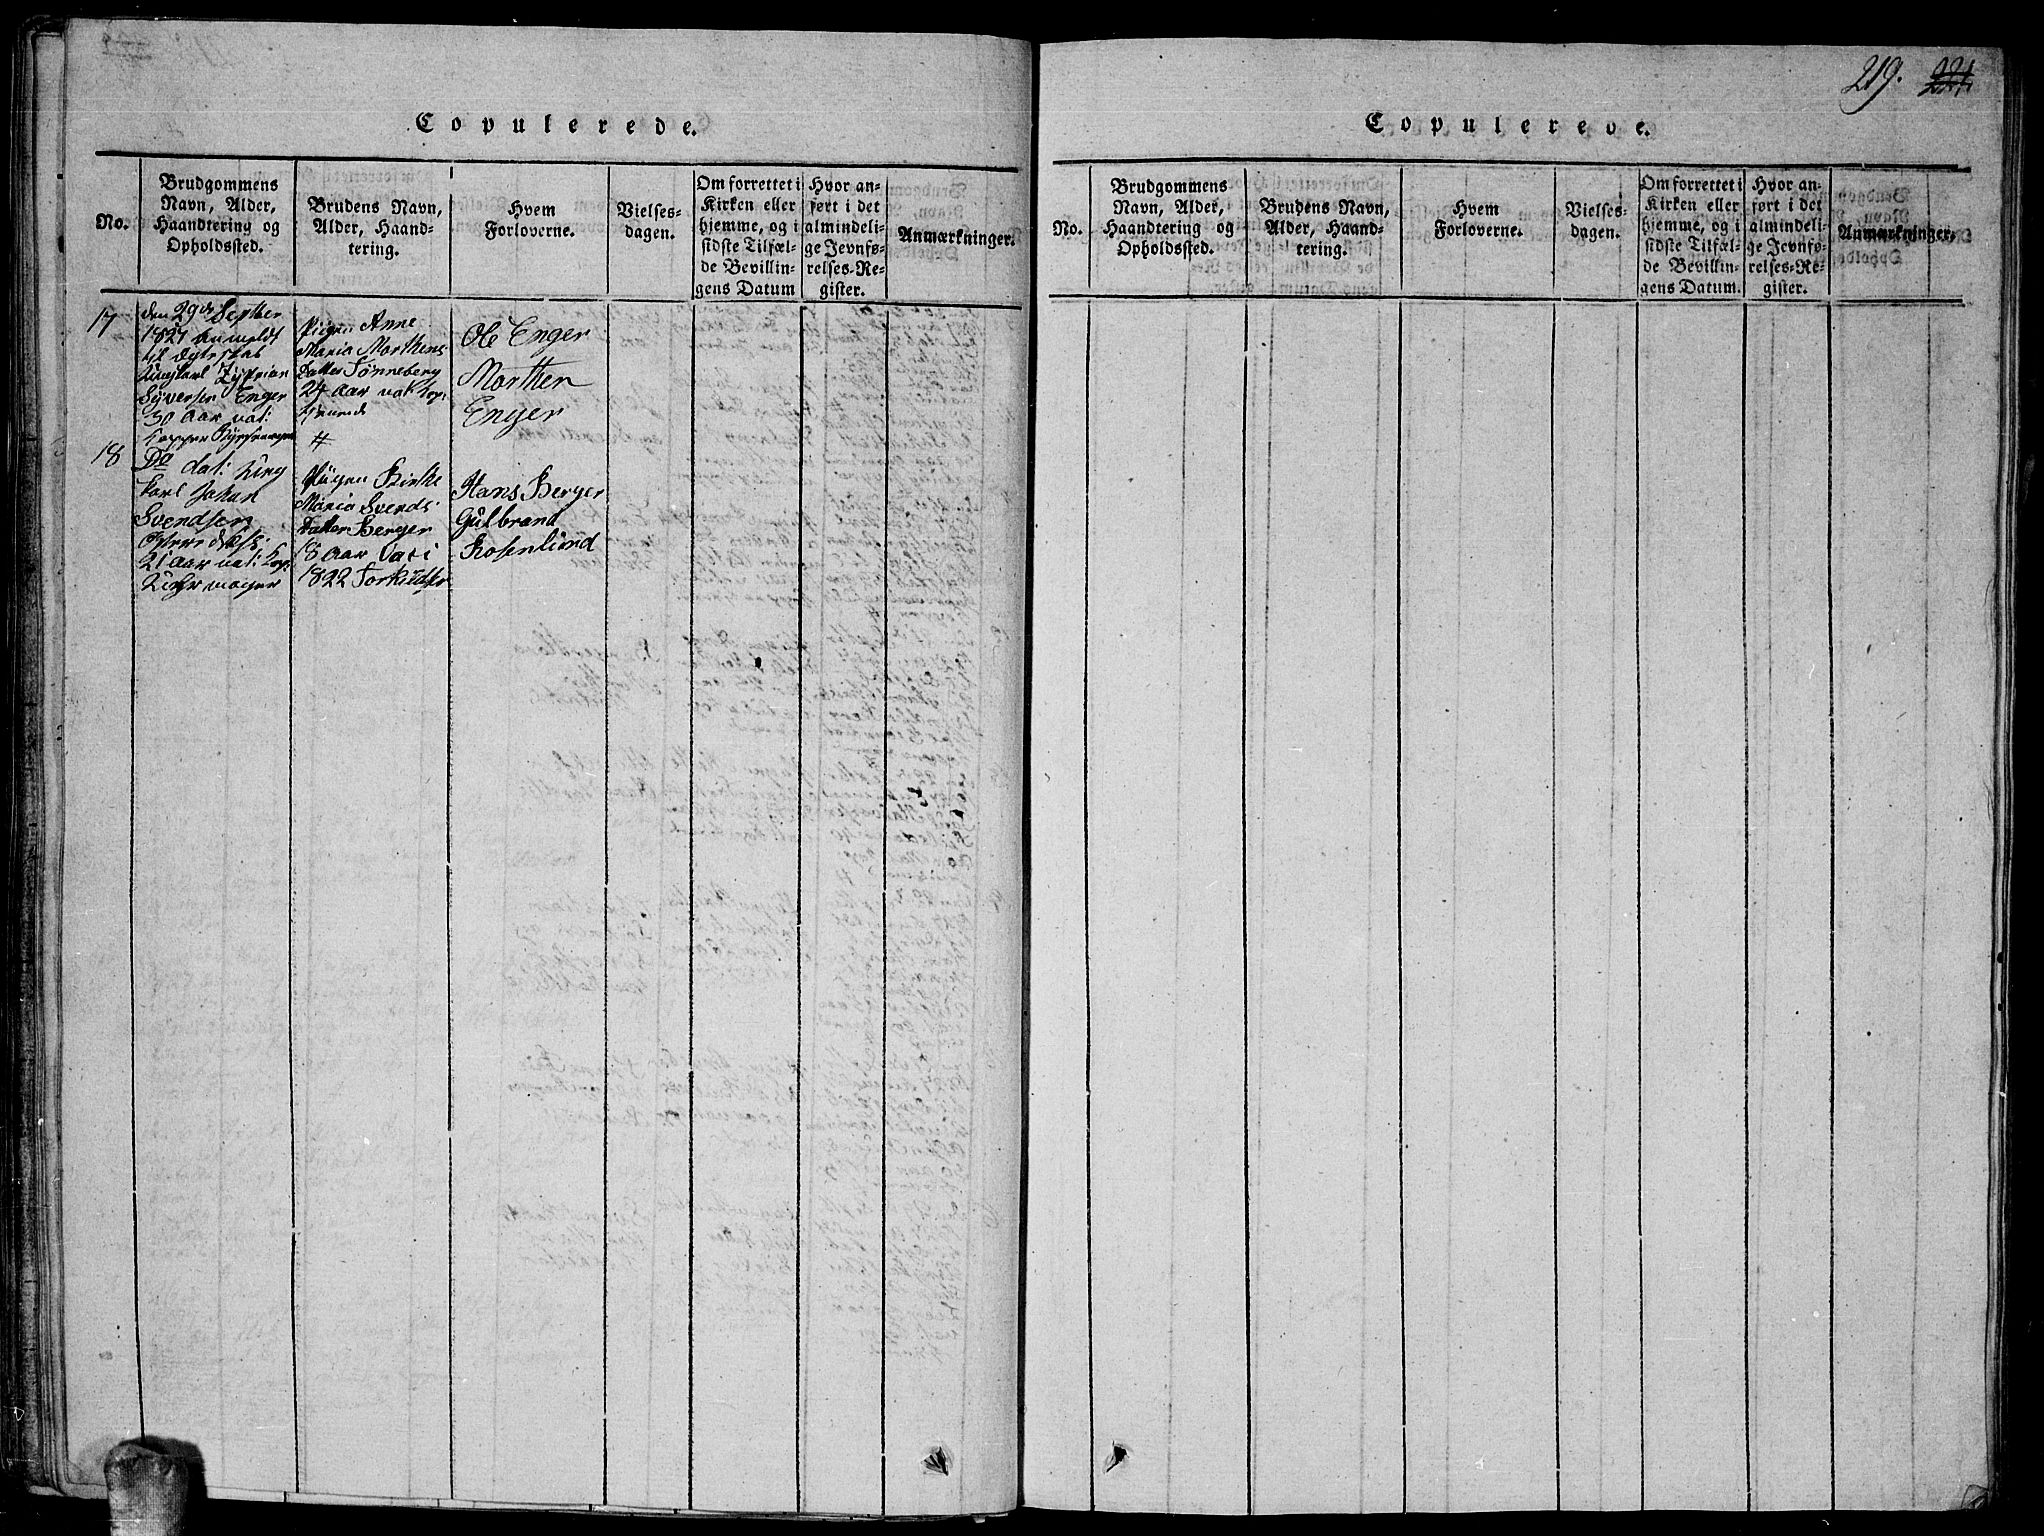 219. 221
Copulerede.
No.
Brudgommens
Navn, Alder,
Haandtering og
Opholdssted.
Brudens Navn,
Alder, Haand-
tering.
Hvem
Forloverne.
Vielses-
dagen.
Om forrettet i
Kirken eller
hjemme, og i
sidste Tilfæl-
de Bevillin-
gens Datum
Hvor an-
ført i det
almindeli-
ge Jevnfø-
relses-Re-
gister.
Anmærkninger.
17
den 29de Septber
1827 anmeldt
til Ægteskab
Ungkarl
Syversen Enger
30 Aar vac:
Pigen Anne
Maria Morthens
Datter Tønneberg
24 Aar vac
Ole Enger
Morthen
Enger
18
Do dat: Ung
karl Johan
Svendsen
21 Aar vac:
Pigen Birthe
Maria Svends
Datter Berger
18 Aar vac:
1822
Hans Berger
Gulbrand
Rosenlund
Copulerede.
No.
Brudgommens
Navn, Alder,
Haandtering og
Opholdssted.
Brudens Navn,
Alder, Haand-
tering.
Hvem
Forloverne.
Vielses-
dagen.
Om forrettet i
Kirken eller
hjemme, og i
sidste Tilfæl-
de Bevillin-
gens Datum.
Hvor an-
ført i det
almindeli-
ge Jevnfø-
relses-Re-
gister.
Anmærkninger.